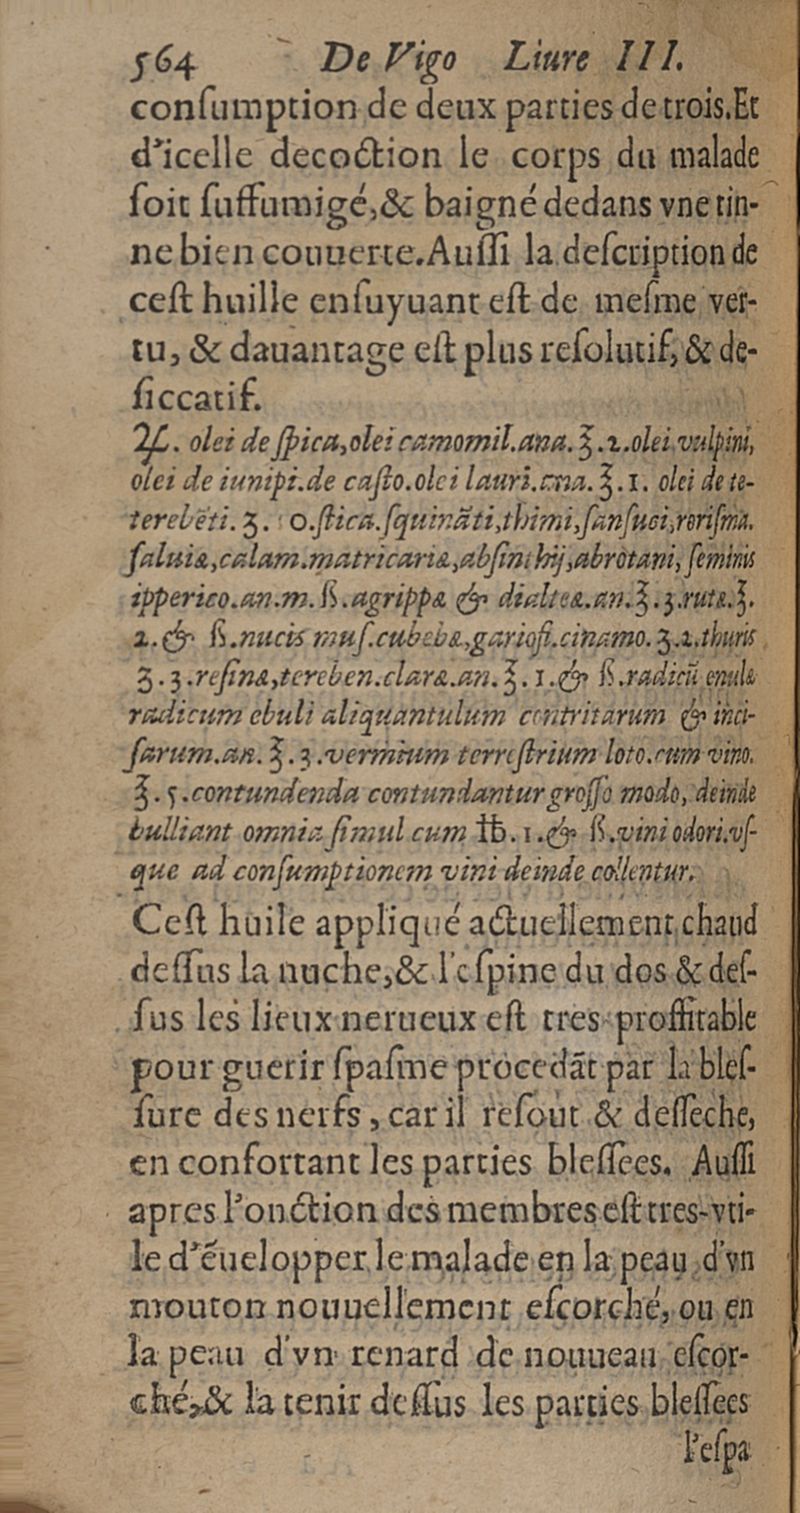 564 De Vigo Liure III.
conſumption de deux parties de trois. Et
d'icelle decoction le corps du malade
ſoit ſuffumigé, & baigné dedans vne tin-
ne bien couuerte. Auſſi la deſcription de
ceſt huille enſuyuant eſt de meſme ver-
tu, & dauantage eſt plus reſolutif, & de-
ſiccatif.
♃. olei de ſpica, olei camomil. ana. ℥. 2. olei vulpini,
olei de iunipi. de caſto. olei lauri. ana. ℥. 1. olei de te-
terebẽti. ʒ. 10. ſtica. ſquinãti, thimi, ſanſuci, roriſma.
ſaluiæ, calam. matricariæ, abſinthij, abrotani, ſeminis
ipperico. an. m. ß. agrippæ & dialteæ. an. ℥. 3. rutæ. ℥.
2. & ß. nucis muſ. cubebæ, gariofi. cinamo. ʒ. 2. thuris
ʒ. 3. reſinæ, tereben. claræ. an. ℥. 1. & ß. radicũ enulæ
radicum ebuli aliquantulum contritarum & inci-
ſarum. an. ℥. 3. vermium terreſtrium loto. cum vino.
℥. 5. contundenda contundantur groſſo modo, deinde
bulliant omnia ſimul cum ℔. 1. & ß. vini odori. vſ-
que ad conſumptionem vini deinde collentur.
Ceſt huile appliqué actuellement chaud
deſſus la nuche, & l'eſpine du dos & deſ-
ſus les lieux nerueux eſt tres proffitable
pour guerir ſpaſme procedãt par la bleſ-
ſure des nerfs, car il reſout & deſſeche,
en confortant les parties bleſſees. Auſſi
apres l'onction des membres eſt tres-vti-
le d'ẽuelopper le malade en la peau d'vn
mouton nouuellement eſcorché, ou en
la peau d'vn renard de nouueau eſcor-
ché, & la tenir deſſus les parties bleſſees
l'eſpa